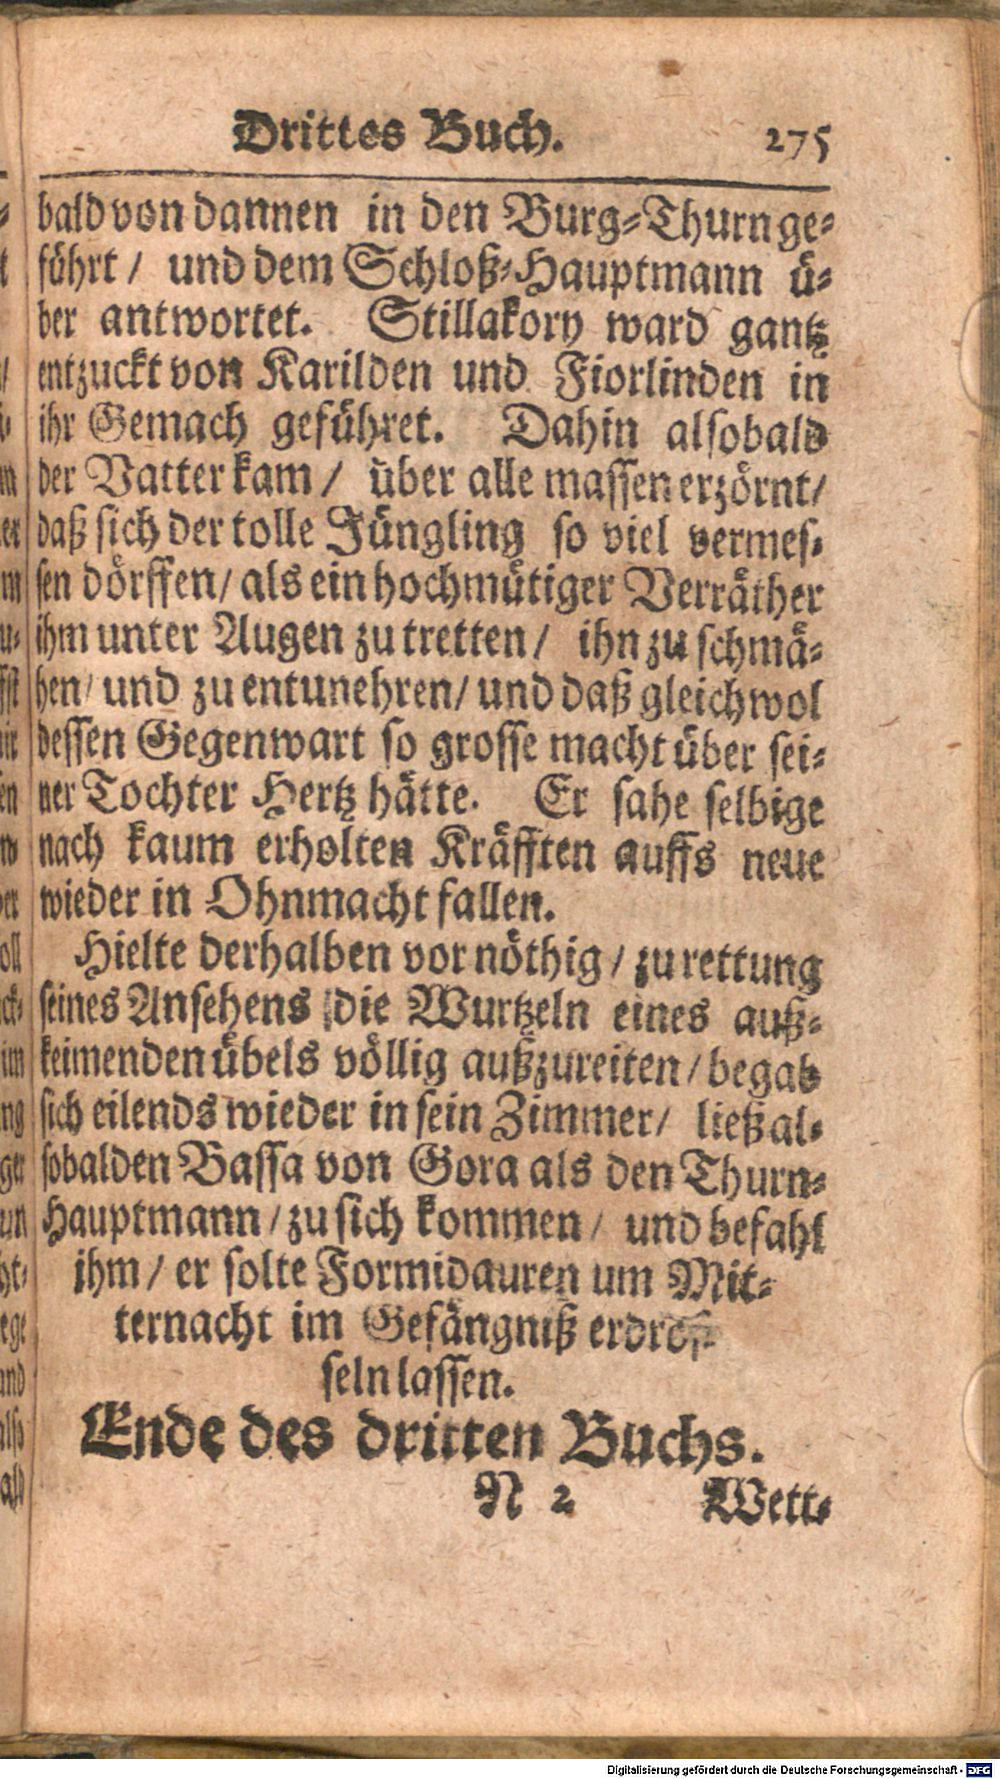 Drittes Buch. 275
bald von dannen in den Burg-Thurn ge-
führt / und dem Schloß-Hauptmann ü-
ber antwortet. Stillakory ward gantz
entzuckt von Karilden und Fiorlinden in
ihr Gemach geführet. Dahin alsobald
der Vatter kam / über alle massen erzörnt /
daß sich der tolle Jüngling so viel vermes-
sen dörffen / als ein hochmütiger Verräther
ihm unter Augen zu tretten / ihn zu schmä-
hen / und zu entunehren / und daß gleichwol
dessen Gegenwart so grosse macht über sei-
ner Tochter Hertz hätte. Er sahe selbige
nach kaum erholten Kräfften auffs neue
wieder in Ohnmacht fallen.
Hielte derhalben vor nöthig / zu rettung
seines Ansehens die Wurtzeln eines auß-
keimenden übels völlig außzureiten / begab
sich eilends wieder in sein Zimmer / ließ al-
sobald den Bassa von Gora als den Thurn-
Hauptmann / zu sich kommen / und befahl
ihm / er solte Formidauren um Mit-
ternacht im Gefängniß erdros-
seln lassen.
Ende des dritten Buchs.
N 2 Wett-
Digitalisierung gefördert durch die Deutsche Forschungsgemeinschaft - DFG